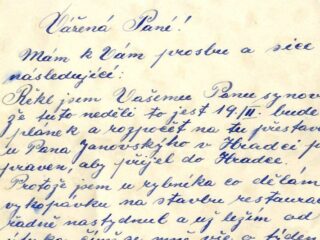 Vážená Pané!
Mám k Vám prosbu a sice
následující:
Řekl jsem Vašemu Panu synov
že tuto neděli to jest 19./II. bude
plánek a rozpočet na tu přestav
u Pana Janovského v Hradci p
praven, aby přijel do Hradce.
Protože jsem u rybníka co dělám
výkopávku na stavbu restaurac
řádně nastydnul a už ležím od